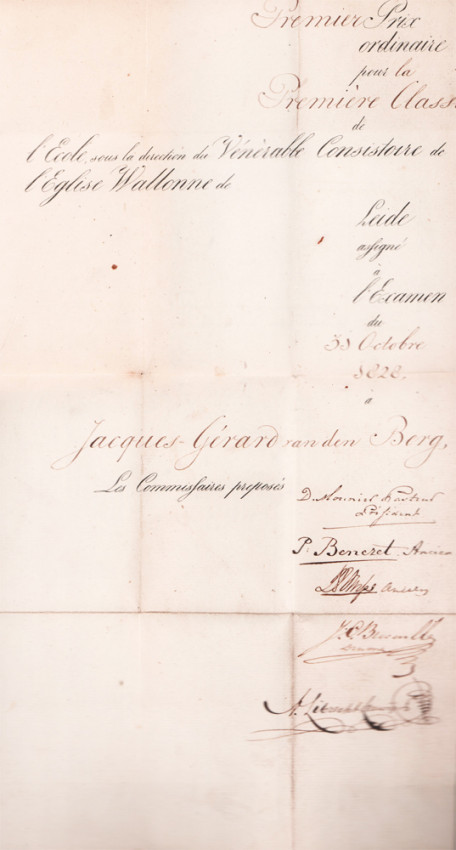 Premier Prix
ordinaire
pour la
Première Class
de
l'Ecole, sous la direction du Vénérable Consistoire de
l'Eglise Wallonne de
Leide
assigné
à
l'Examen
du
31 Octobre
1828.
à
Jacques-Gérard van den Berg,
Les Commissaires proposés
Pasteur
Président
P. Beneret Ancien
Ancien
J. C.
A.